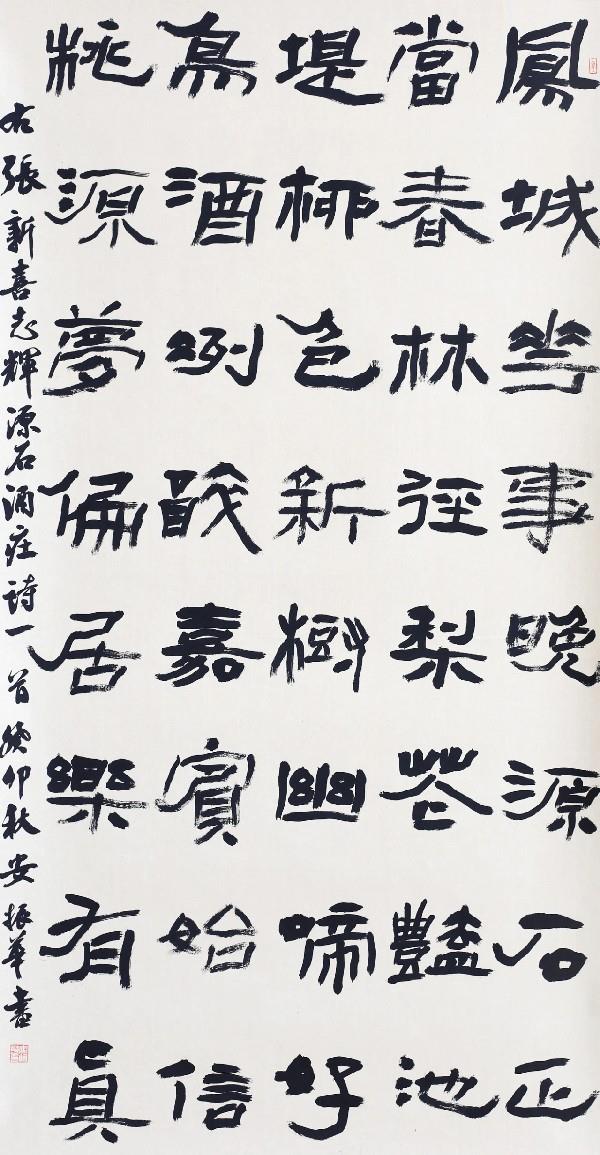 鳳城華事晚源石正
當春林徑梨花豔池
堤柳色新樹幽啼好
鳥酒冽嘉賓始信
桃源夢偏居樂有真
右張新喜志輝源石酒庄詩一首癸卯秋安振華書